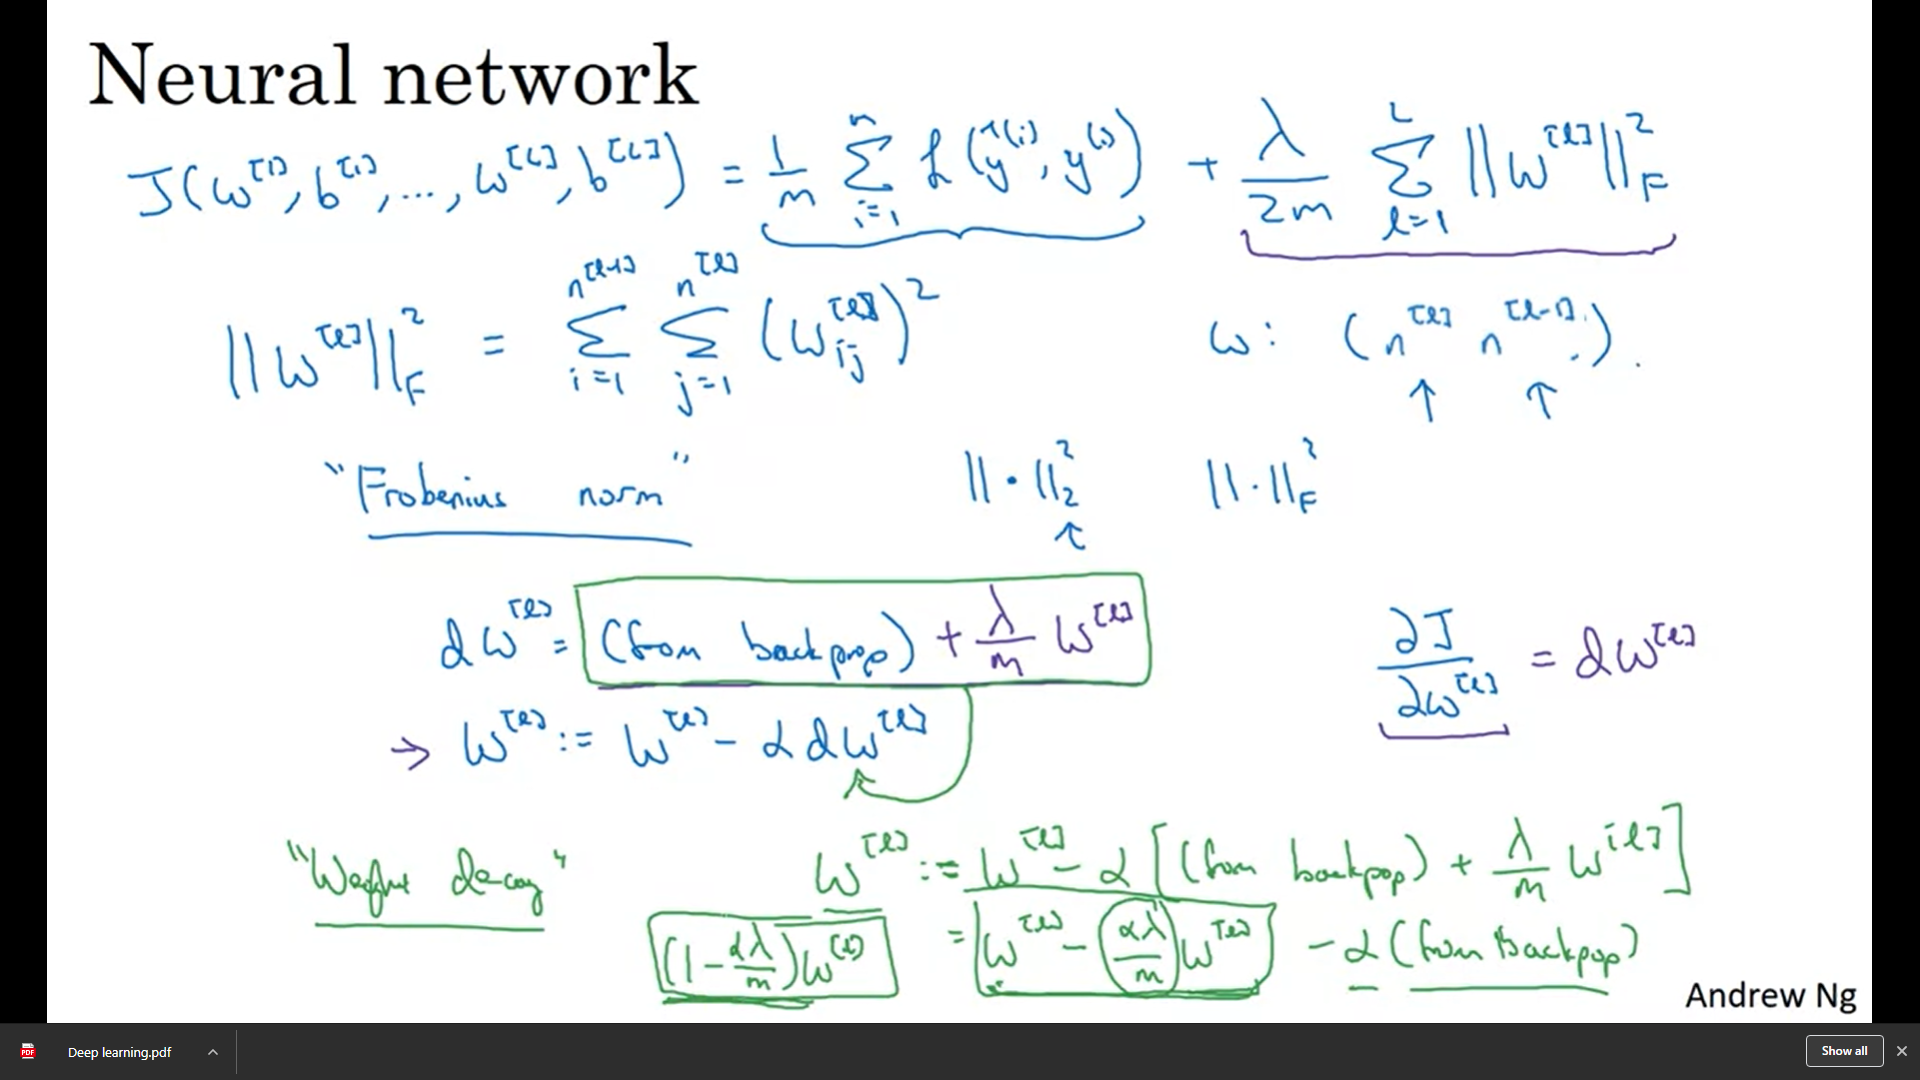 Neural network
J(w^[1], b^[1], ..., w^[L], b^[L]) = 1/m Σ_{i=1}^{m} L(ŷ^(i), y^(i)) + λ/2m Σ_{l=1}^{L} ||w^[l]||_F^2
||w^[l]||_F^2 = Σ_{i=1}^{n^[l-1]} Σ_{j=1}^{n^[l]} (w_ij^[l])^2
w: (n^[l] n^[l-1]).
↑ ↑
"Frobenius norm"
||·||_2^2 ||·||_F^2
↑
dw^[l] = (from backprop) + λ/m w^[l]
∂J/∂w^[l] = dw^[l]
→ w^[l] := w^[l] - α dw^[l]
"Weight decay"
w^[l] := w^[l] - α [(from backpop) + λ/m w^[l]]
= w^[l] - αλ/m w^[l] - α (from backpop)
(1 - αλ/m) w^[l]
Andrew Ng
PDF
Deep learning.pdf
Show all